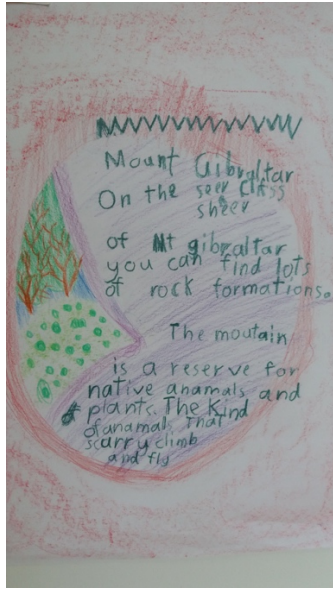 Mount Gibraltar
On the seer cliss
sheer
of Mt gibraltar
you can find lots
of rock formations.
The moutain
is a reserve for
native anamals and
plants. The Kind
of anamals that
scarry climb
and fly